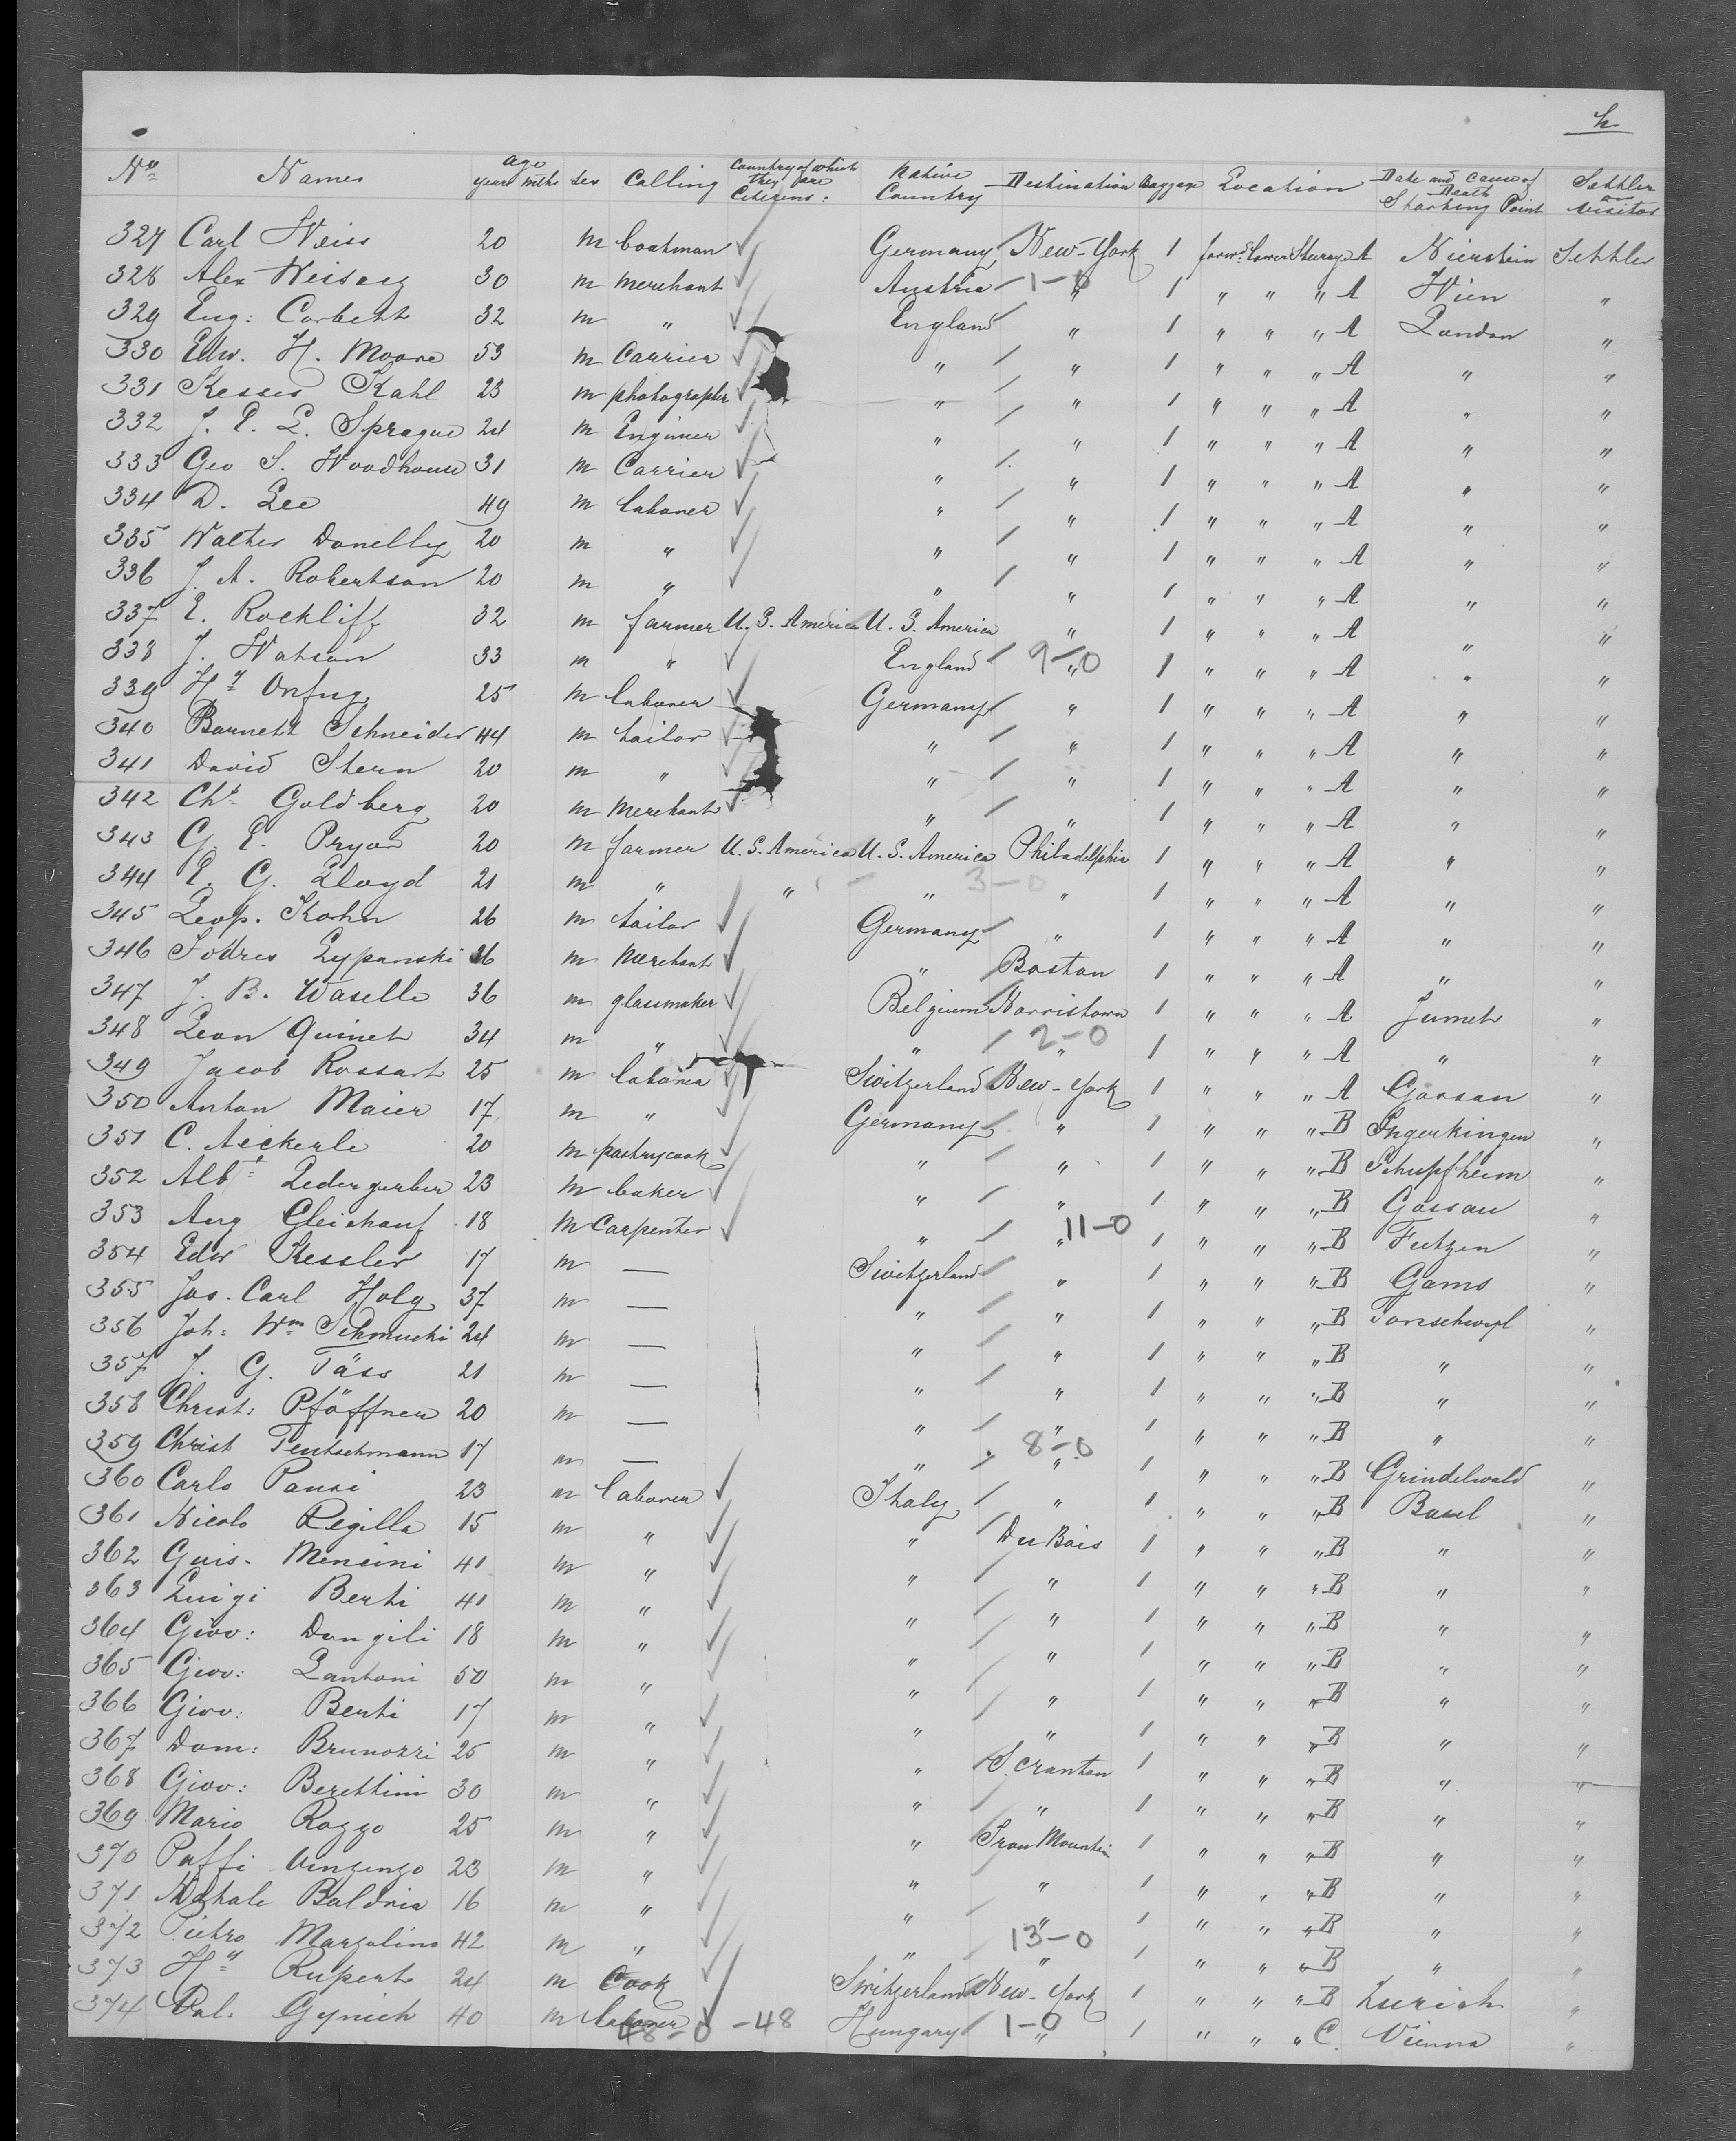 h
No Names age years mths sex Calling Country of which they are Citizens: Native Country Destination Baggage Location Date and cause of Death Starting Point Settler or visitor
327 Carl Weiss 20 m boatman Germany New-York 1 forwd. Lower Steerage A Nierstein Settler
328 Alex 30 m merchant Austria 1-0 " 1 " " " A Wien "
329 Eug: Corbett 32 m " England " 1 " " " A London "
330 Edw. H. Moore 53 m Carrier " " 1 " " " A " "
331 Kahl 23 m photographer " " 1 " " " A " "
332 J. E. L. Sprague 24 m Engineer " " 1 " " " A " "
333 Geo S. Woodhouse 31 m Carrier " " 1 " " " A " "
334 D. Lee 49 m laborer " " 1 " " " A " "
335 Walter Donelly 20 m " " " 1 " " " A " "
336 J. A. Robertson 20 m " " " 1 " " " A " "
337 E. Rockliff 32 m farmer U. S. America U. S. America " 1 " " " A " "
338 J. Watson 33 m " England 9-0 " 1 " " " A " "
339 Hy 25 m laborer Germany " 1 " " " A " "
340 Barnett Schneider 44 m tailor " " 1 " " " A " "
341 David Stern 20 m " " " 1 " " " A " "
342 Chs Goldberg 20 m Merchant " " 1 " " " A " "
343 G. E. Pryor 20 m farmer U. S. America U. S. America Philadelphia 1 " " " A " "
344 E. G. Lloyd 21 m " " " 3-0 " 1 " " " A " "
345 Leop. Kohn 26 m tailor Germany " 1 " " " A " "
346 Lypanski m Merchant " Boston 1 " " " A " "
347 J. B. Waselle 36 m glassmaker Belgium Norristown 1 " " " A Jumet "
348 Leon Quinet 34 m " " 2-0 " 1 " " " A " "
349 Jacob Rossart 25 m laborer Switzerland New-York 1 " " " A Gossau "
350 Anton Maier 17 m " Germany " 1 " " " B Ingerkingen "
351 C. Aickerle 20 m pastrycook " " 1 " " " B Schupfheim "
352 Albt Ledergerber 23 m baker " " 1 " " " B Gossau "
353 Aug Gleichauf 18 m Carpenter " 11-0 " 1 " " " B Futzen "
354 Edw Kessler 17 m — Switzerland " 1 " " " B Gams "
355 Jos. Carl Holy 37 m — " " 1 " " " B "
356 Joh: Wm Schmucki 24 m — " " 1 " " " B " "
357 J. G. Täss 21 m — " " 1 " " " B " "
358 Christ: Pfäffner 20 m — " " 1 " " " B " "
359 Christ Teutschmann 17 m — " 8-0 " 1 " " " B Grindelwald "
360 Carlo Pausi 23 m laborer Italy " 1 " " " B Basel "
361 Nicolo Regilla 15 m " " Du Bois 1 " " " B " "
362 Guis. Mencini 41 m " " " 1 " " " B " "
363 Luigi Berti 41 m " " " 1 " " " B " "
364 Giov: Dongili 18 m " " " 1 " " " B " "
365 Giov: Lantoni 50 m " " " 1 " " " B " "
366 Giov: Berti 17 m " " " 1 " " " B " "
367 Dom: Brunozzi 25 m " " Scranton 1 " " " B " "
368 Giov: Berettini 30 m " " " 1 " " " B " "
369 Mario Rozzo 25 m " " Iron Mountain 1 " " " B " "
370 Paffi Vinzenzo 23 m " " " 1 " " " B " "
371 Natale Baldria 16 m " " " 1 " " " B " "
372 Pietro Marzolino 42 m " " 13-0 " 1 " " " B " "
373 Hy Rupert 24 m Cook Switzerland New-York 1 " " " B Zurich "
374 Val. Gynich 40 m laborer 48-0 -48 Hungary 1-0 " 1 " " " C. Vienna "